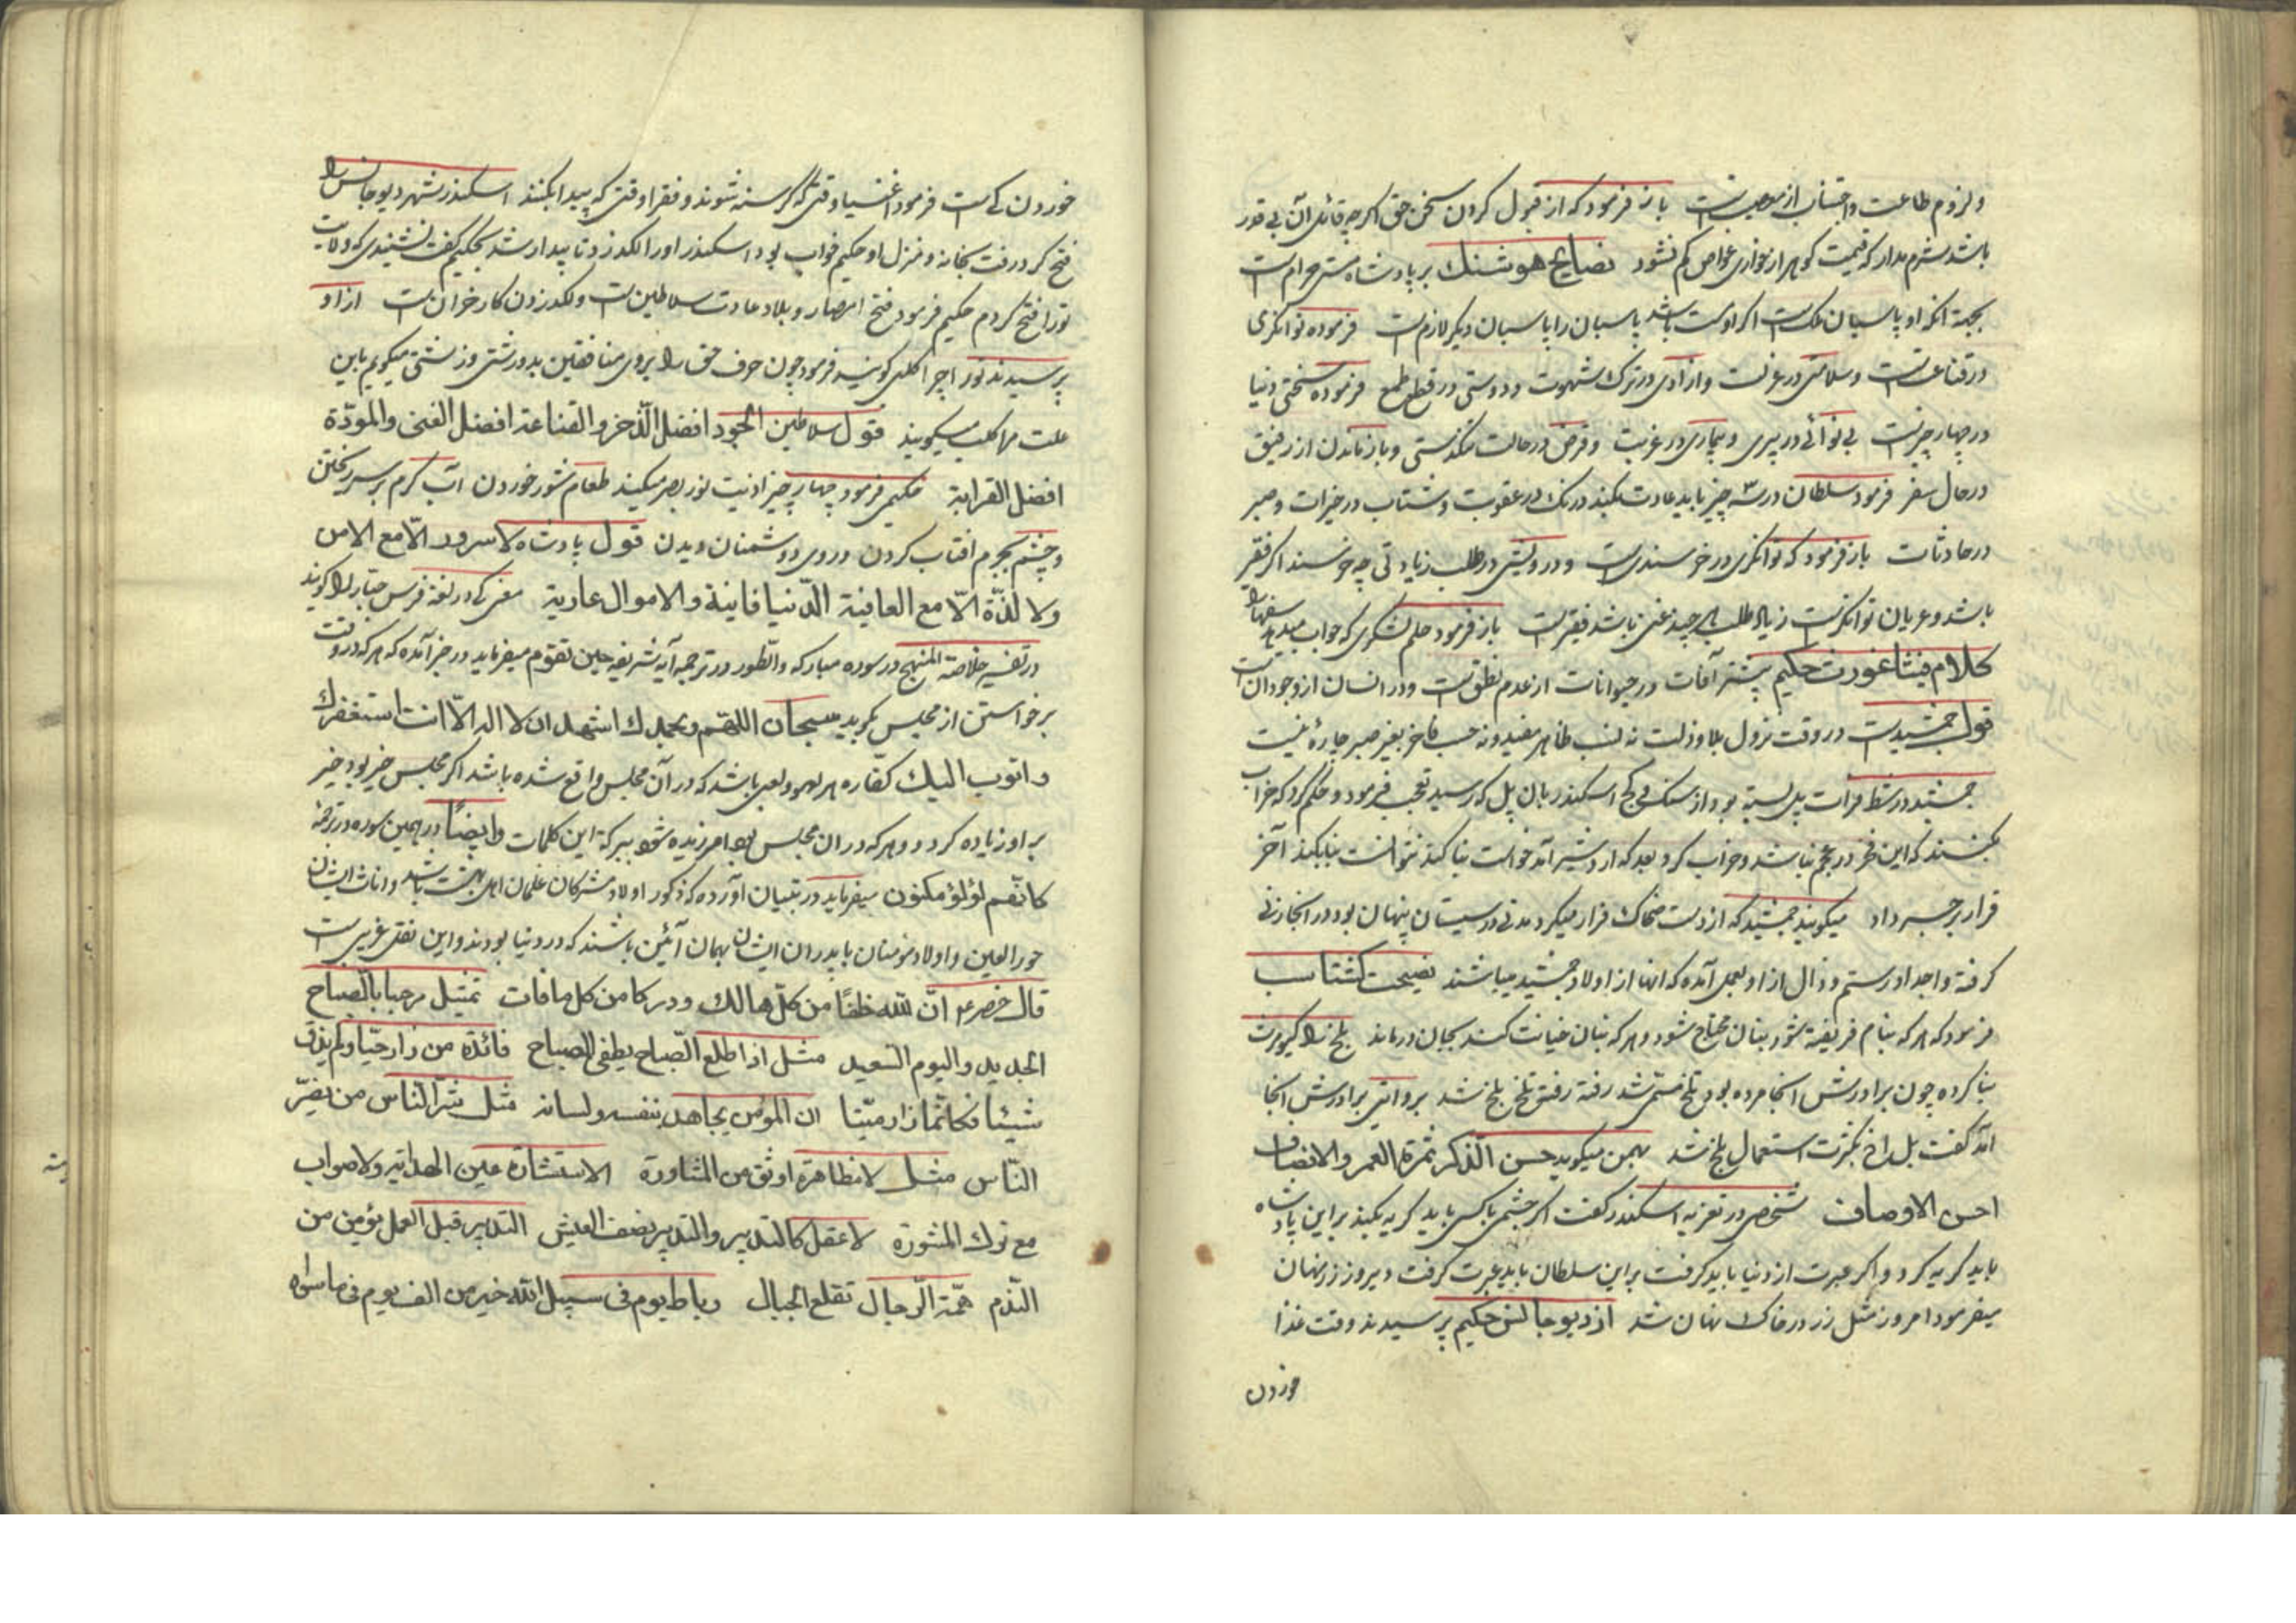 و لزوم طاعت و اجتناب از معصیت است باز فرمود که از قبول کردن سخن حق اگرچه قائل آن بی قدر
باشد شرم مدار که قیمت گوهر از خواری غواص کم نشود نصایح هوشنک بر پادشاه مستی حرام است
بجهة آنکه او پاسبان ملکست اگر او مست باشد پاسبان را پاسبان دیگر لازم است فرموده توانگری
در قناعت است و سلامتی در عزلت و آزادی در ترک شهوت و دوستی در قطع طمع فرموده سختی دنیا
در چهار چیز است بی نوائی در پیری و بیماری در غربت و قرض در حالت تنگدستی و باز ماندن از رفیق
در حال سفر فرمود سلطان در سه چیز باید عادت بکند درنک در عقوبت و شتاب در خیرات و صبر
در حادثات باز فرمود که توانگری در خرسندی است و درویشی در طلب زیادتی چه خرسند اگر فقیر
باشد و عریان توانگر است زیاد طلب هر چند غنی باشد فقیر است باز فرمود حلم لشکری که جواب میدهد سفها را
کلام فیثاغورث حکیم بیشتر آفات در حیوانات از عدم نطق است و در انسان از وجود آن است
قول جمشید است در وقت نزول بلا و ذلت نه نسب ظاهر مفید و نه حسب فاخر بغیر صبر چارۀ نیست
جمشید در شط فرات پلی بسته بود از سنک و گچ اسکندر بان پل که رسید تعجب فرمود و حکم کرد که خراب
بکنند که این فخر در عجم نباشد و خراب کرد و بعد که اردشیر آمد خواست بنا کند نتوانست بنا بکند آخر
قرار بر جسر داد میگویند جمشید که از دست ضحاک فرار میکرد مدتی در سیستان پنهان بود در آنجا زنی
گرفته و اجداد رستم و زال از او بعمل آمده که آنها از اولاد جمشید میباشند نصیحت کشتاسب
فرمود که هر که بنام فریفته شود بنان محتاج شود و هر که بنان خیانت کند بجان درماند بلخ را کیومرث
بنا کرده چون برادرش آنجا مرده بود تلخ مسمی شد رفته رفته تلخ بلخ شد بروایتی برادرش آنجا
آمد گفت بل اخ بکثرت استعمال بلخ شد بهمن میگوید حسن الذکر ثمرة العمر والانصاف
احسن الاوصاف شخصی در تعزیه اسکندر گفت اگر چشمی با کسی باید گریه بکند بر این پادشاه
باید گریه کرد و اگر عبرت از دنیا باید گرفت بر این سلطان باید عبرت گرفت دیروز زر پنهان
میفرمود امروز مثل زر در خاک نهان شد از دیوجانس حکیم پرسیدند وقت غذا
خوردن
خوردن کی است فرمود اغنیا وقتی که گرسنه شوند و فقرا وقتی که پیدا بکنند اسکندر شهر دیوجانس را
فتح کرد رفت بخانه و منزل او حکیم خواب بود اسکندر او را لگد زد تا بیدار شد بحکیم گفت نشنیدی که ولایت
تو را فتح کردم حکیم فرمود فتح امصار و بلاد عادت سلاطین است و لگد زدن کار خران است از او
پرسیدند تو را چرا کلبی گویند فرمود چون حرف حق را بروی منافقین بدرشتی و زشتی میگویم باین
علت مرا کلب میگویند قول سلاطین الجود افضل الذخر و القناعة افضل الغنی والمودّة
افضل القرابة حکیمی فرمود چهار چیز اذیت نور بصر میکند طعام شور خوردن آب گرم بر سر ریختن
و چشم بجرم آفتاب کردن و روی دشمنان دیدن قول پادشاه لا سرور الّا مع الامن
ولا لذّة الّا مع العافیة الدّنیا فانیة والاموال عاریة مغ کی در لغة فرس جبّار را گویند
در تفسیر خلاصة المنهج در سوره مبارکه والطور در ترجمه آیه شریفه حین تقوم میفرماید در خبر آمده که هر که در وقت
برخواستن از مجلس بگوید سبحان اللهم و بحمدك اشهد ان لا اله الّا انت استغفرك
و اتوب الیك کفّاره هر لهو و لعبی باشد که در آن مجلس واقع شده باشد اگر مجلس خیر بود خیر
بر او زیاده گردد و هر که در آن مجلس بود آمرزیده شود ببرکة این کلمات وایضاً در همین سوره در ترجمه
کانّهم لؤلؤ مکنون میفرماید در تبیان آورده که ذکور اولاد مشرکان غلمان اهل بهشت باشند و اناث ایشان
حور العین و اولاد مومنان با پدران ایشان بهمان آئین باشند که در دنیا بودند و این نقلی غریبی است
قال خضر ع انّ لله خلفاً من کلّ هالك و درکا من کل مافات تمثیل مرحبا بالصباح
الجدید والیوم السعید مثل اذا طلع الصّباح یطفی المصباح فائدة من زار حیّا ولم یذق
شیئا فکانّما زار میّتا ان المؤمن یجاهد بنفسه ولسانه مثل شرّ الناس من یضرّ
النّاس مثل لا مظاهرة اوثق من المشاورة الاستشارة عین الهدایة ولا صواب
مع ترك المشورة لا عقل کالتدبیر والتدبیر نصف العیش التدبیر قبل العمل یؤمن من
النّدم همّة الرّجال تقلع الجبال رباط یوم فی سبیل الله خیر من الف یوم فی ما سواه